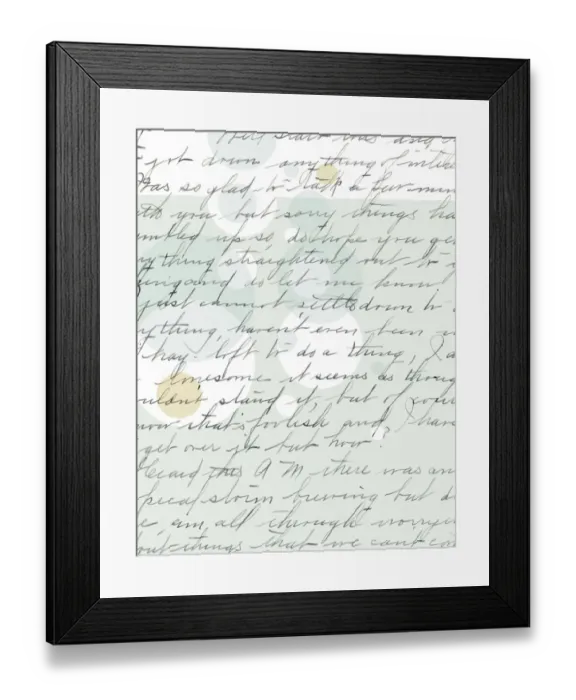 was
jot down anything of
was so glad to talk a few min
th you but sorry things ha
mbled up so do hope you ge
y thing straightened out to
do let me know
just cannot settle down to
ything, haven't even been
hay loft to do a thing, I a
lonesome it seems as thoug
uldn't stand it, but of
now that's foolish and I have
get over it but how?
heard this A M there was an
storm brewing but d
e, am all through worryi
out things that we can't con